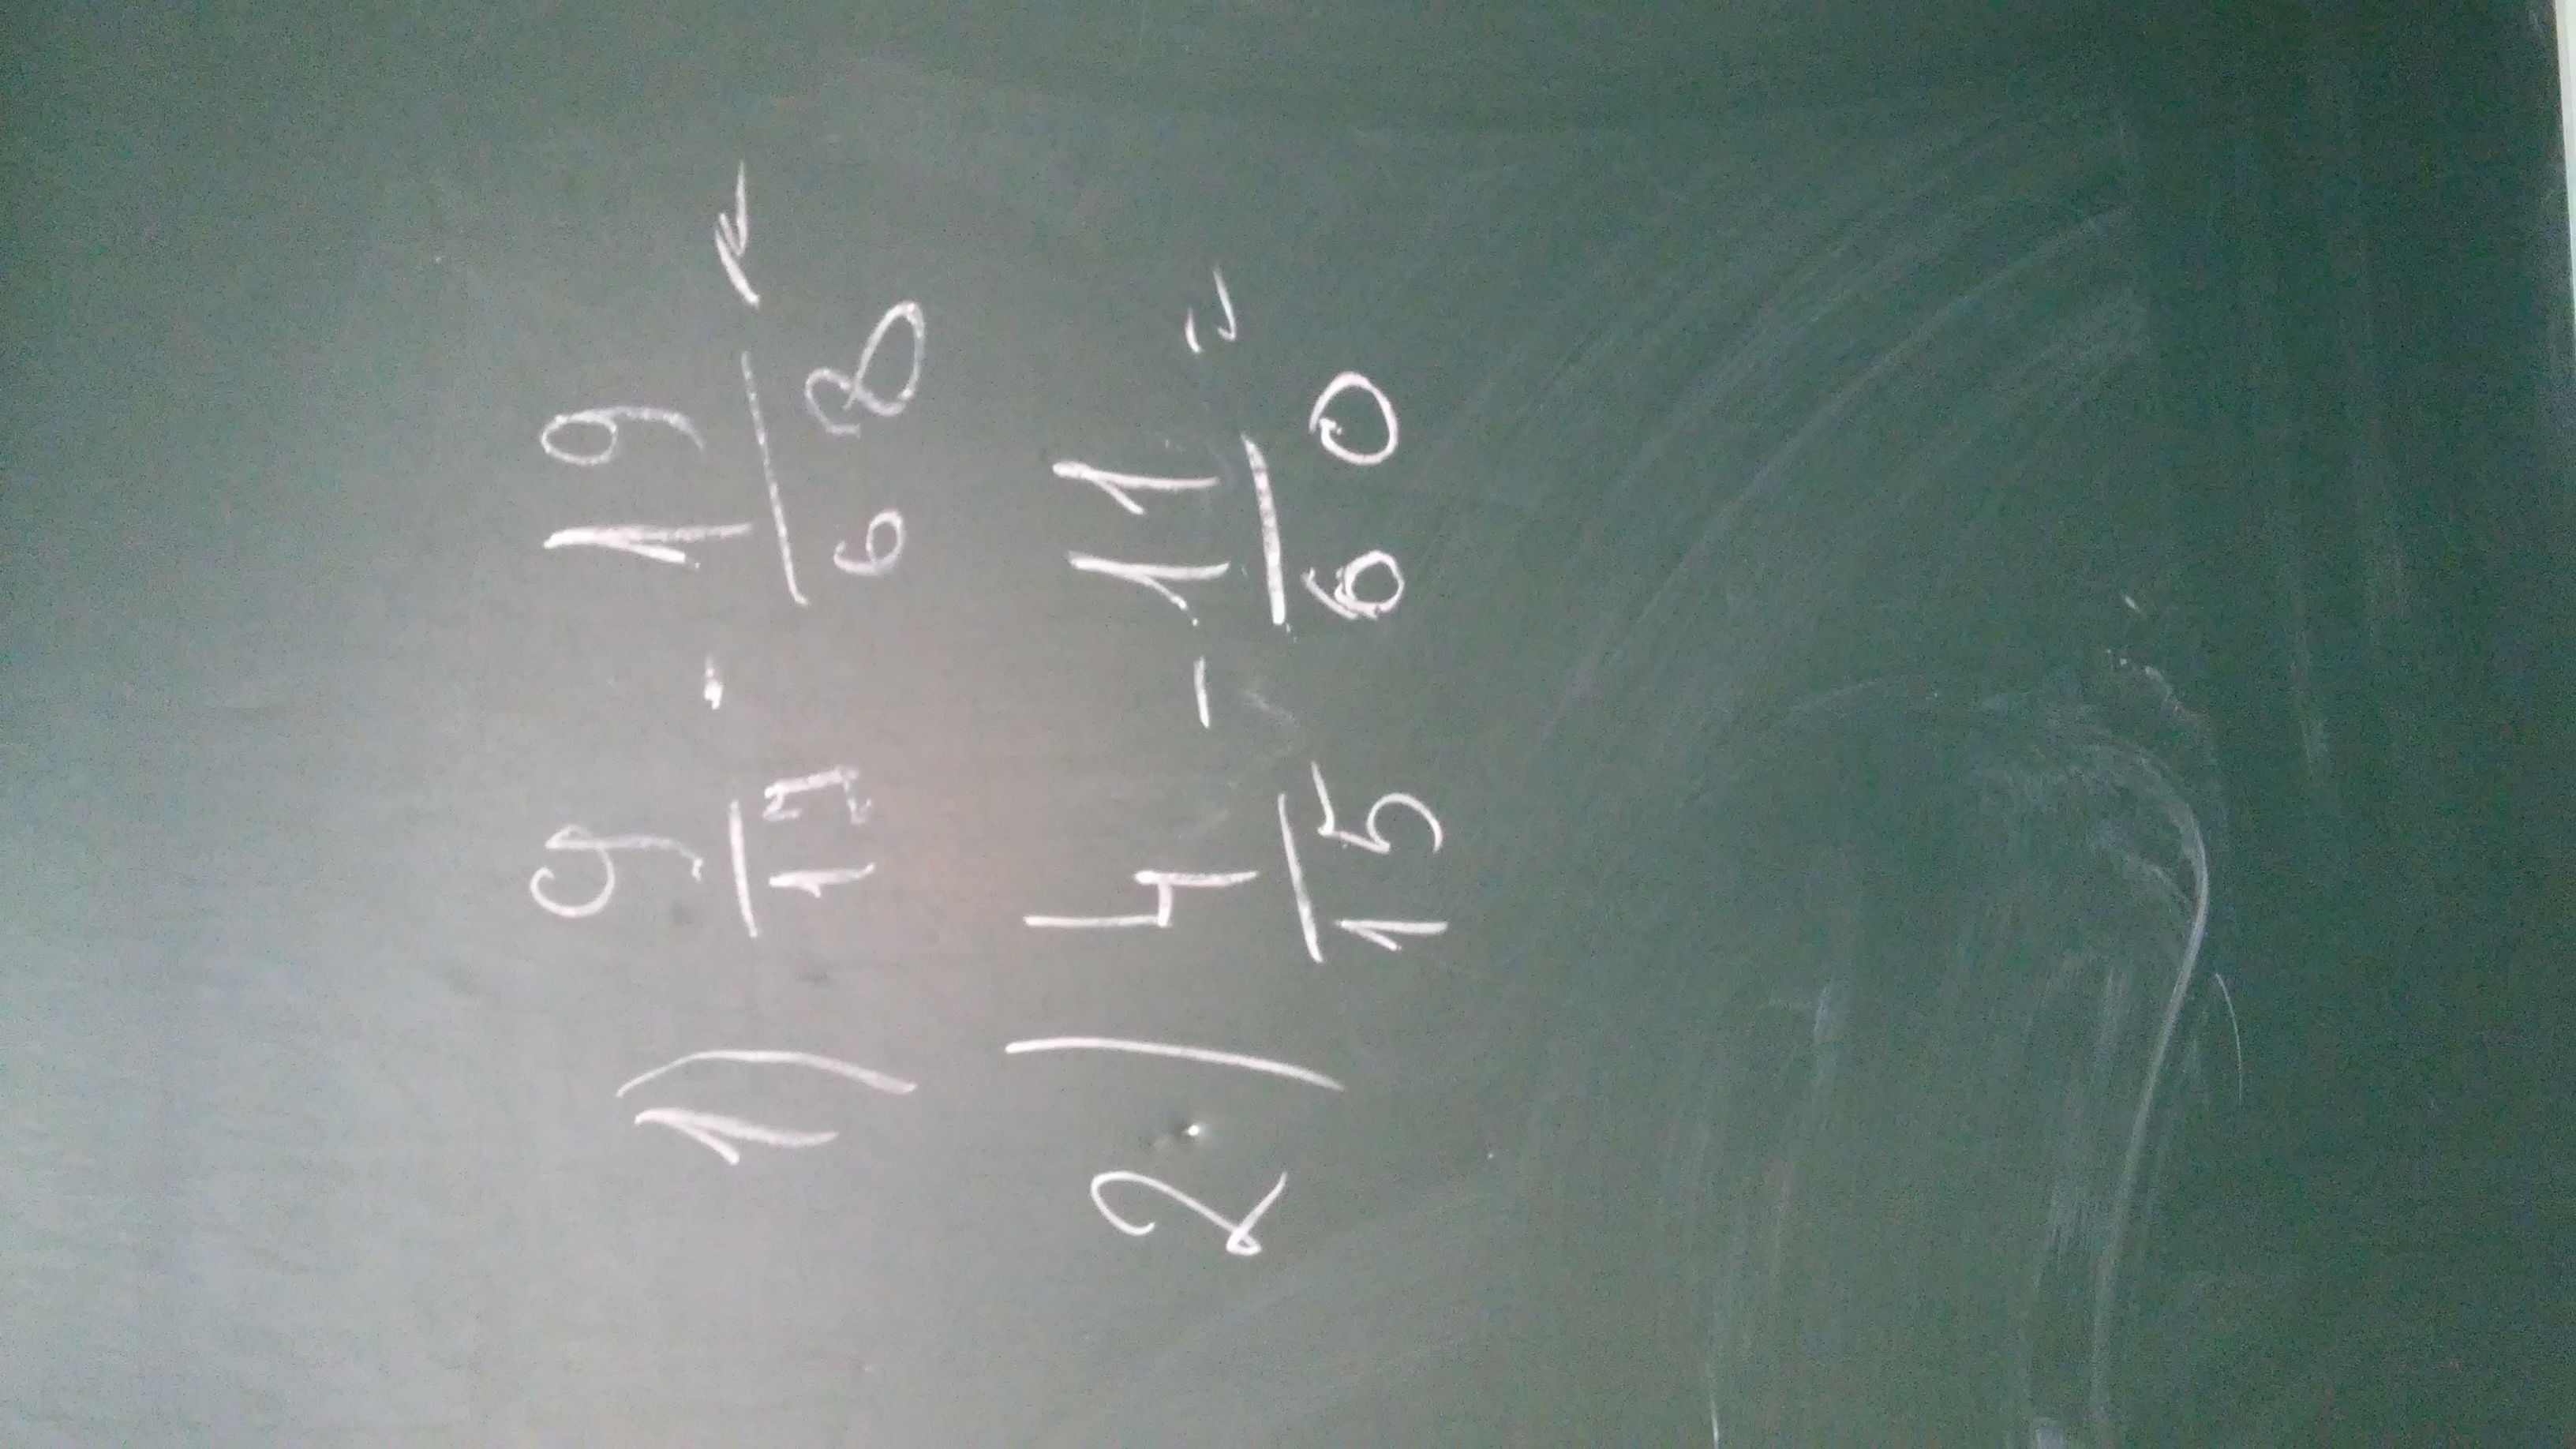 1) 9/17 - 19/68 =
2) 4/15 - 11/60 =